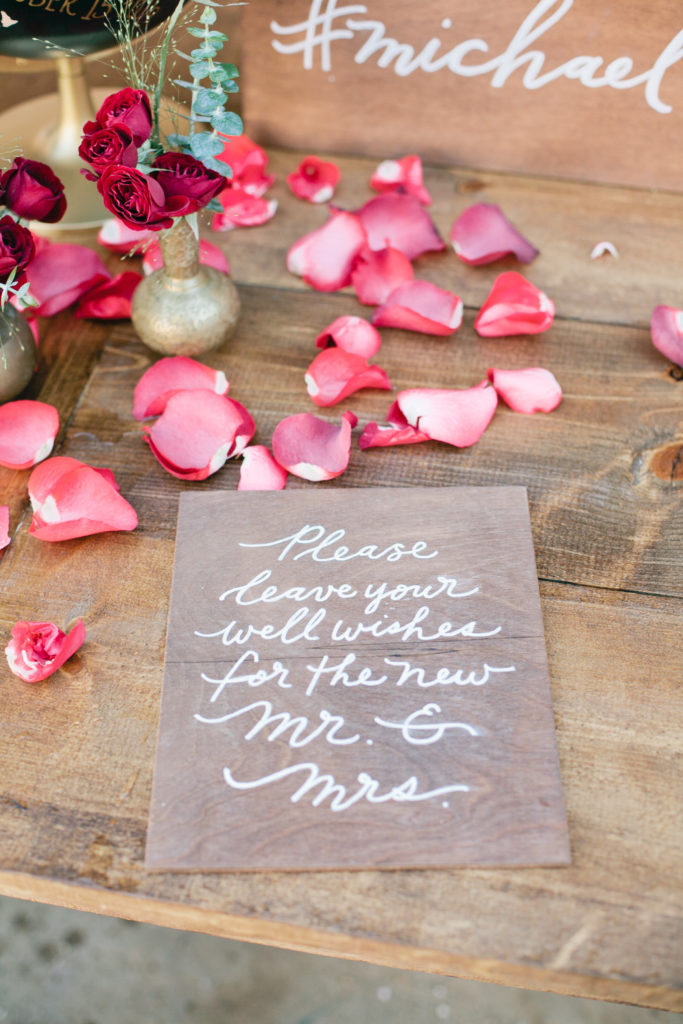 OBER 15
#michael
Please
leave your
well wishes
for the new
Mr. &
Mrs.